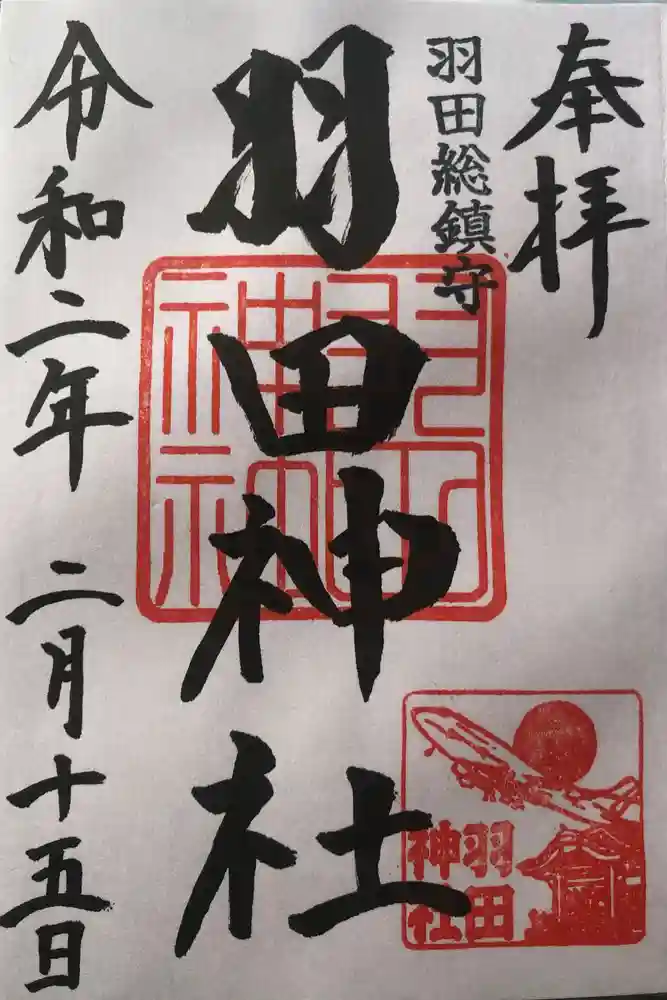 奉拝
羽田総鎮守
羽田神社
令和二年 二月十五日
羽田
神社